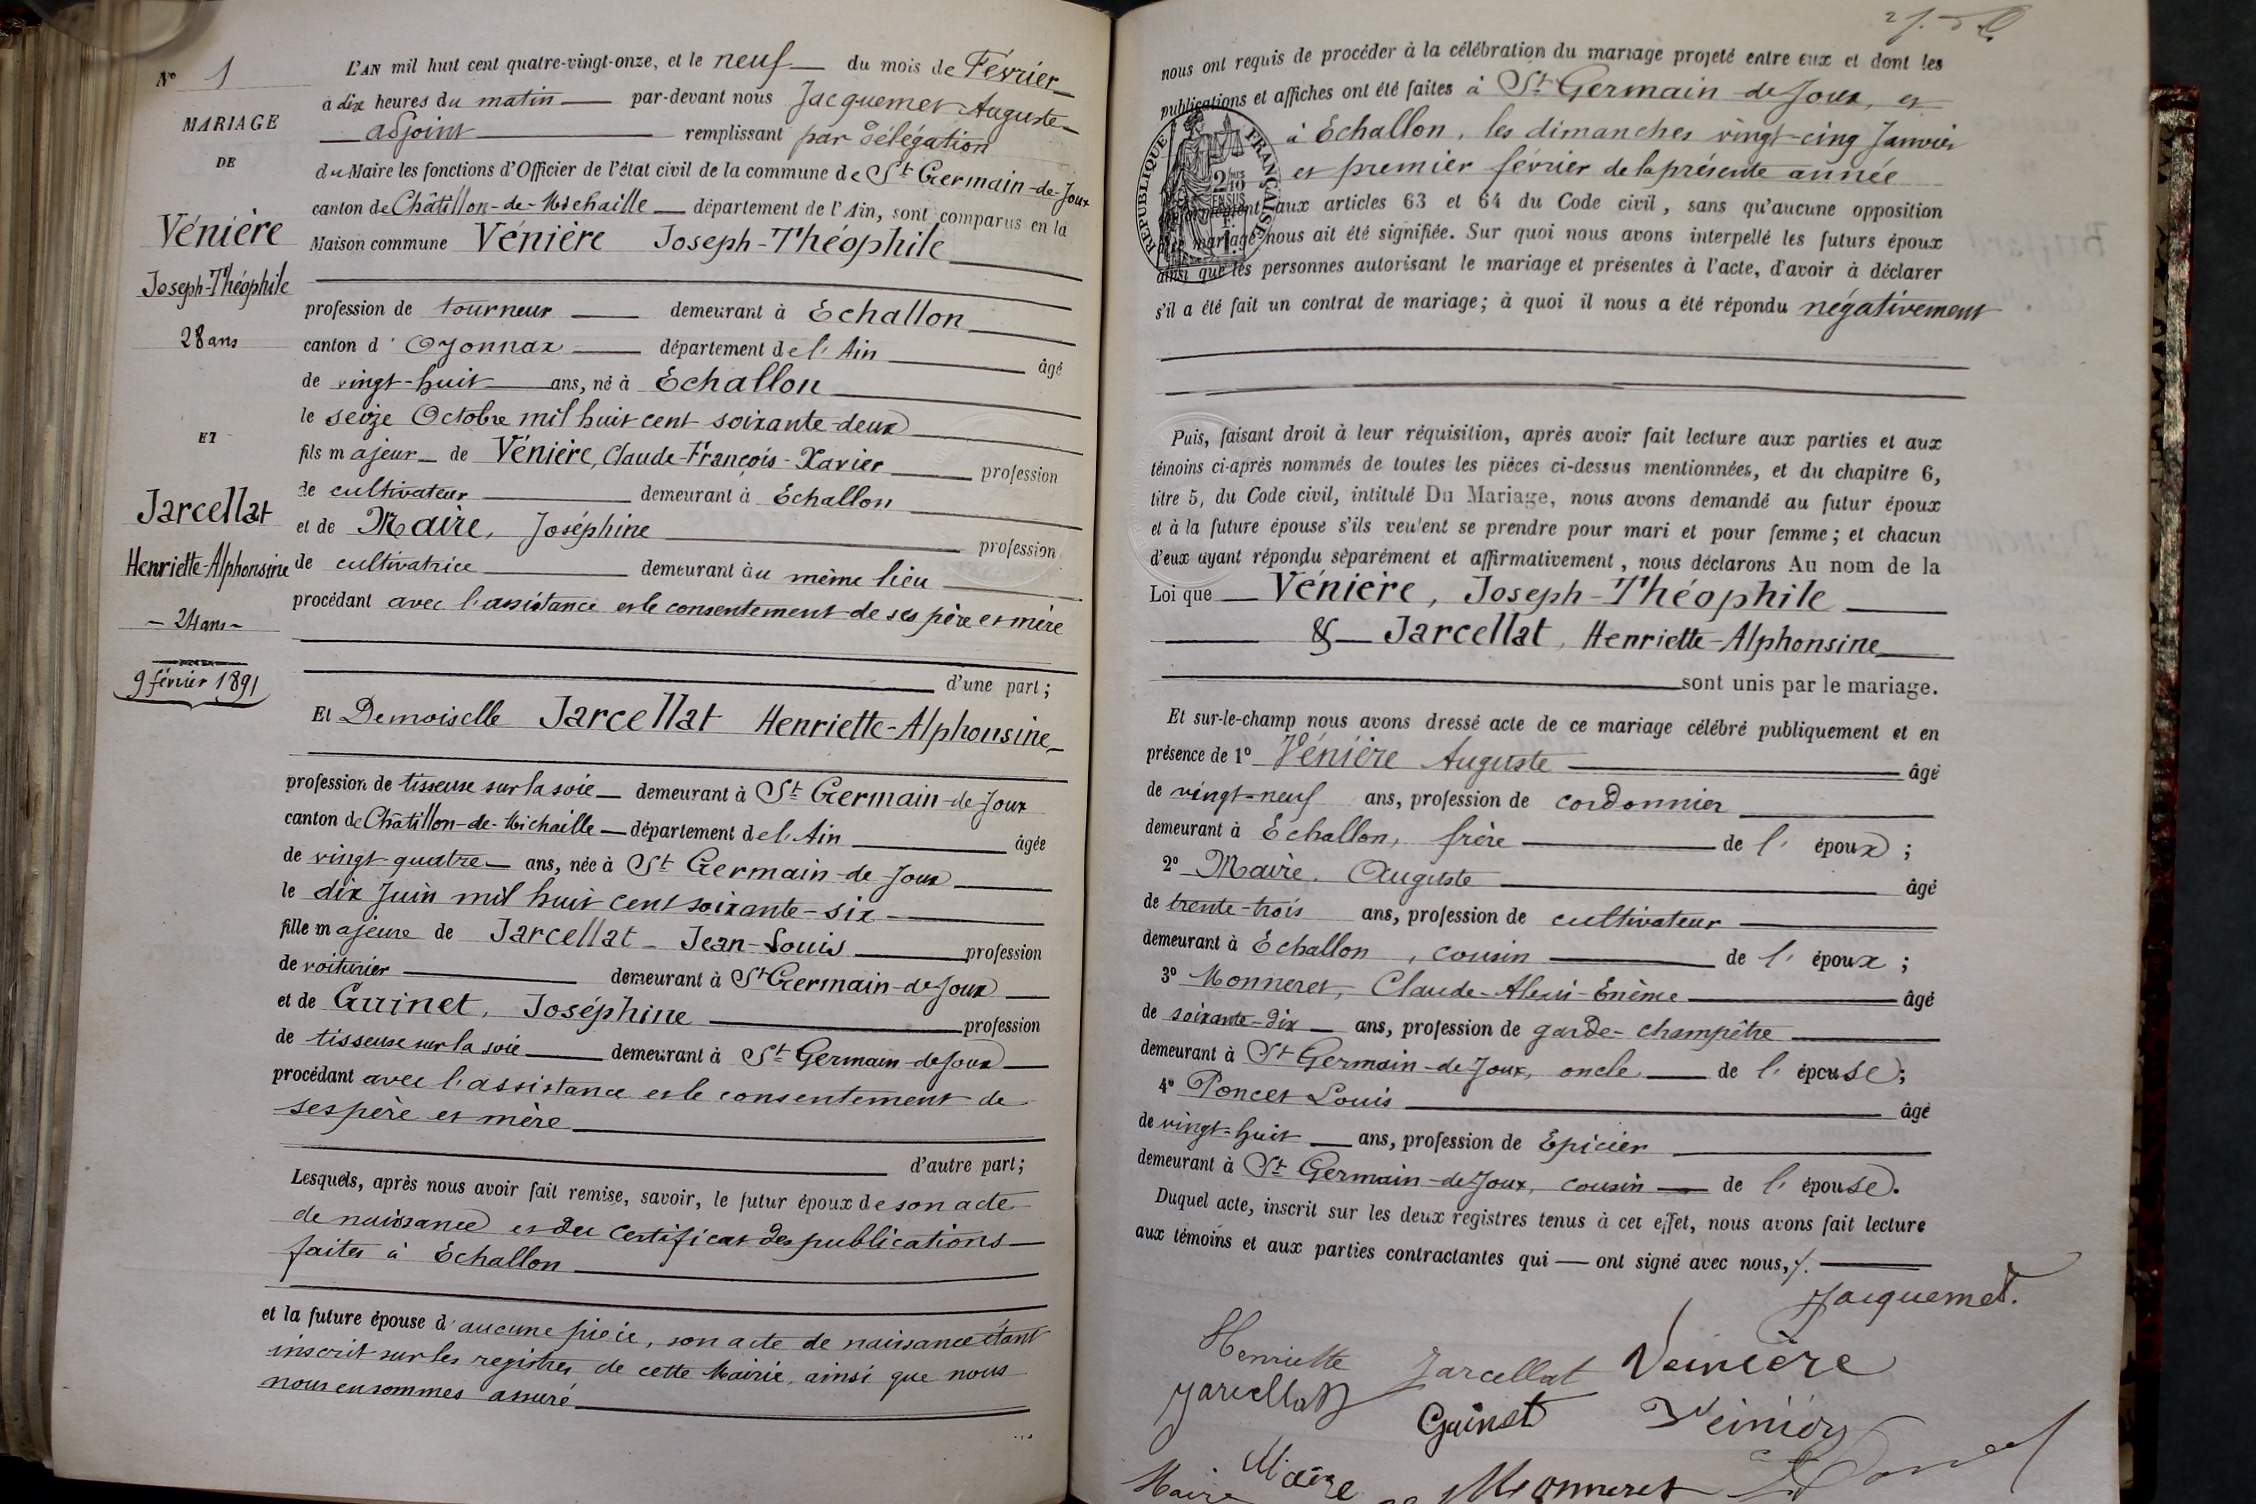 N° 1
MARIAGE
DE
Vénière
Joseph-Théophile
28 ans
ET
Jarcellat
Henriette-Alphonsine
- 24 ans -
9 février 1891
L'AN mil huit cent quatre-vingt-onze, et le neuf du mois de Février
à dix heures du matin par-devant nous Jacquemet Auguste
adjoint remplissant par délégation
du Maire les fonctions d'Officier de l'état civil de la commune de St Germain-de-Joux
canton de Châtillon-de-Michaille département de l'Ain, sont comparus en la
Maison commune Vénière Joseph-Théophile
profession de tourneur demeurant à Echallon
canton d'Oyonnax département de l'Ain âgé
de vingt-huit ans, né à Echallon
le seize Octobre mil huit cent soixante-deux
fils majeur de Vénière, Claude-François-Xavier profession
de cultivateur demeurant à Echallon
et de Maire, Joséphine profession
de cultivatrice demeurant au même lieu
procédant avec l'assistance et le consentement de ses père et mère
d'une part;
Et Demoiselle Jarcellat Henriette-Alphonsine
profession de tisseuse sur la soie demeurant à St Germain-de-Joux
canton de Châtillon-de-Michaille département de l'Ain âgée
de vingt quatre ans, née à St Germain-de-Joux
le dix Juin mil huit cent soixante-six
fille majeure de Jarcellat Jean-Louis profession
de voiturier demeurant à St Germain-de-Joux
et de Guinet, Joséphine profession
de tisseuse sur la soie demeurant à St Germain-de-Joux
procédant avec l'assistance et le consentement de
ses père et mère
d'autre part;
Lesquels, après nous avoir fait remise, savoir, le futur époux de son acte
de naissance et du certificat des publications
faites à Echallon
et la future épouse d'aucune pièce, son acte de naissance étant
inscrit sur les registres de cette Mairie, ainsi que nous
nous en sommes assuré
nous ont requis de procéder à la célébration du mariage projeté entre eux et dont les
publications et affiches ont été faites à St Germain-de-Joux, et
à Echallon, les dimanches vingt-cinq Janvier
et premier février de la présente année
conformément aux articles 63 et 64 du Code civil, sans qu'aucune opposition
mariage nous ait été signifiée. Sur quoi nous avons interpellé les futurs époux
ainsi que les personnes autorisant le mariage et présentes à l'acte, d'avoir à déclarer
s'il a été fait un contrat de mariage; à quoi il nous a été répondu négativement
RÉPUBLIQUE FRANÇAISE
2/10 EN SUS
Puis, faisant droit à leur réquisition, après avoir fait lecture aux parties et aux
témoins ci-après nommés de toutes les pièces ci-dessus mentionnées, et du chapitre 6,
titre 5, du Code civil, intitulé Du Mariage, nous avons demandé au futur époux
et à la future épouse s'ils veulent se prendre pour mari et pour femme; et chacun
d'eux ayant répondu séparément et affirmativement, nous déclarons Au nom de la
Loi que Vénière, Joseph-Théophile
& Jarcellat, Henriette-Alphonsine
sont unis par le mariage.
Et sur-le-champ nous avons dressé acte de ce mariage célébré publiquement et en
présence de 1° Vénière Auguste âgé
de vingt-neuf ans, profession de cordonnier
demeurant à Echallon, frère de l'époux;
2° Maire, Auguste âgé
de trente-trois ans, profession de cultivateur
demeurant à Echallon, cousin de l'époux;
3° Monneret, Claude-Alexis-Enème âgé
de soixante-dix ans, profession de garde-champêtre
demeurant à St Germain-de-Joux, oncle de l'épouse;
4° Poncet Louis âgé
de vingt-huit ans, profession de Epicier
demeurant à St Germain-de-Joux, cousin de l'épouse.
Duquel acte, inscrit sur les deux registres tenus à cet effet, nous avons fait lecture
aux témoins et aux parties contractantes qui ont signé avec nous,
Jacquemet.
Henriette Jarcellat Veinière
Jarcellat Guinet
Maire
Maire Monneret